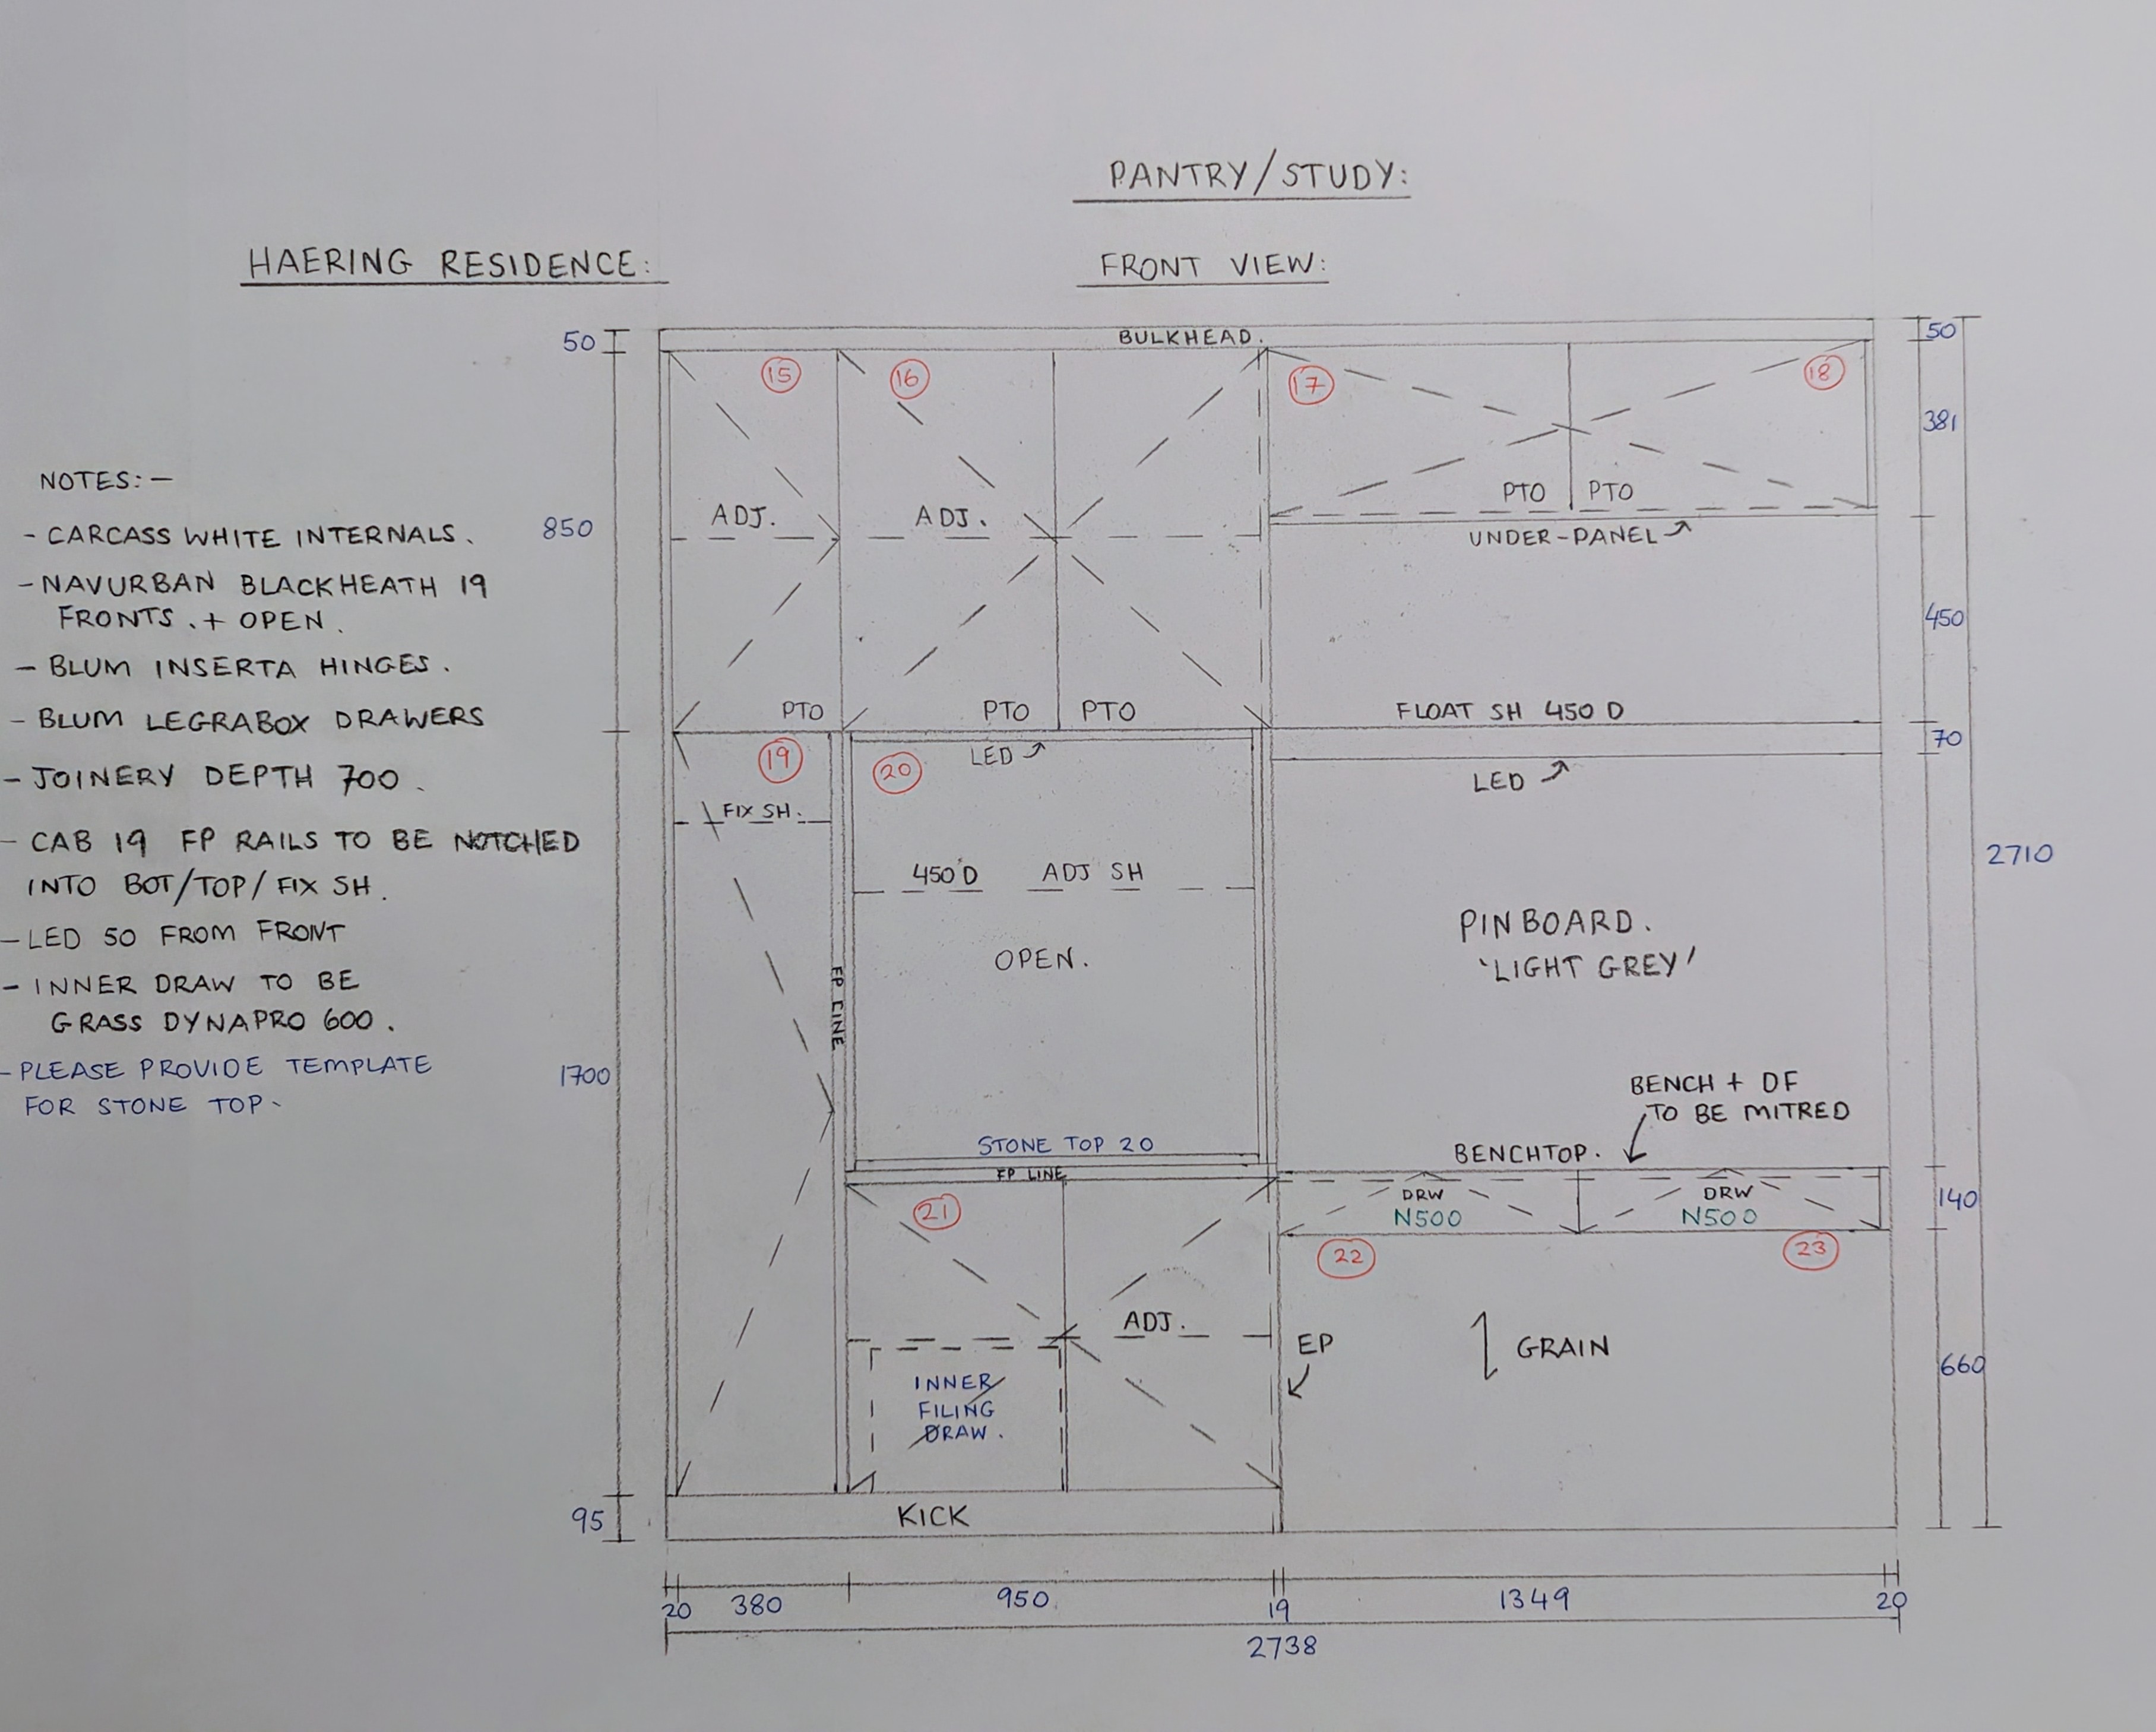 PANTRY/STUDY:
HAERING RESIDENCE:
FRONT VIEW:
BULKHEAD.
50
50
15
16
17
18
381
NOTES:-
- CARCASS WHITE INTERNALS.
- NAVURBAN BLACKHEATH 19
FRONTS.+ OPEN.
- BLUM INSERTA HINGES.
- BLUM LEGRABOX DRAWERS
- JOINERY DEPTH 700.
- CAB 19 FP RAILS TO BE NOTCHED
INTO BOT/TOP/FIX SH.
- LED 50 FROM FRONT
- INNER DRAW TO BE
GRASS DYNAPRO 600.
- PLEASE PROVIDE TEMPLATE
FOR STONE TOP-
850
ADJ.
ADJ.
PTO
PTO
UNDER-PANEL
450
PTO
PTO
PTO
FLOAT SH 450 D
70
19
20
LED
LED
FIX SH.
450 D ADJ SH
2710
OPEN.
PINBOARD.
'LIGHT GREY'
FP LINE
1700
BENCH + DF
TO BE MITRED
STONE TOP 20
BENCHTOP.
FP LINE
DRW
N500
DRW
N500
140
21
22
23
ADJ.
EP
GRAIN
660
INNER
FILING
DRAW.
95
KICK
20
380
950
19
1349
20
2738